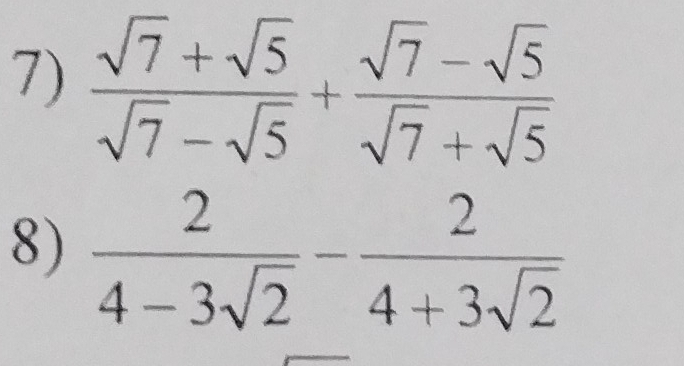 7) \frac{\sqrt{7} + \sqrt{5}}{\sqrt{7} - \sqrt{5}} + \frac{\sqrt{7} - \sqrt{5}}{\sqrt{7} + \sqrt{5}}
8) \frac{2}{4 - 3\sqrt{2}} - \frac{2}{4 + 3\sqrt{2}}